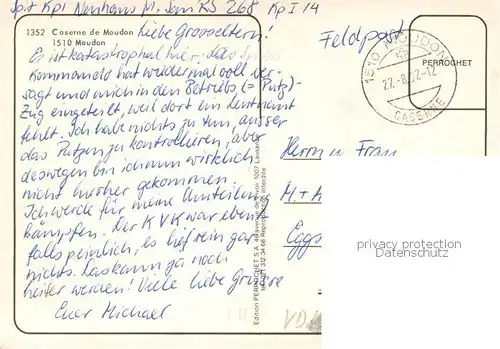 Spit Kpl Neuhaus M. San RS 268 Kp I/14
1352 Caserne de Moudon
1510 Moudon
Liebe Grosseltern!
Es ist katastrophal hier: das
Kommando hat wiedermal voll ver-
sagt und mich in den Betriebs (= Putz)-
Zug eingeteilt, weil dort ein Leutnant
fehlt. Ich habe nichts zu tun, ausser
das Putzen zu kontrollieren, aber
deswegen bin ich nun wirklich
nicht hierher gekommen.
Ich werde für meine Umteilung
kämpfen. Der KVK war eben-
falls peinlich, es lief rein gar
nichts. Das kann ja noch
heiter werden! Viele liebe Grüsse
Euer Michael
Edition PERROCHET S.A. 1007 Lausanne
Reproduction interdite
Feldpost
1510 MOUDON
27.-8.22-12
CASERNE
PERROCHET
Herrn u. Frau
M. +
Eggs
privacy protection
Datenschutz